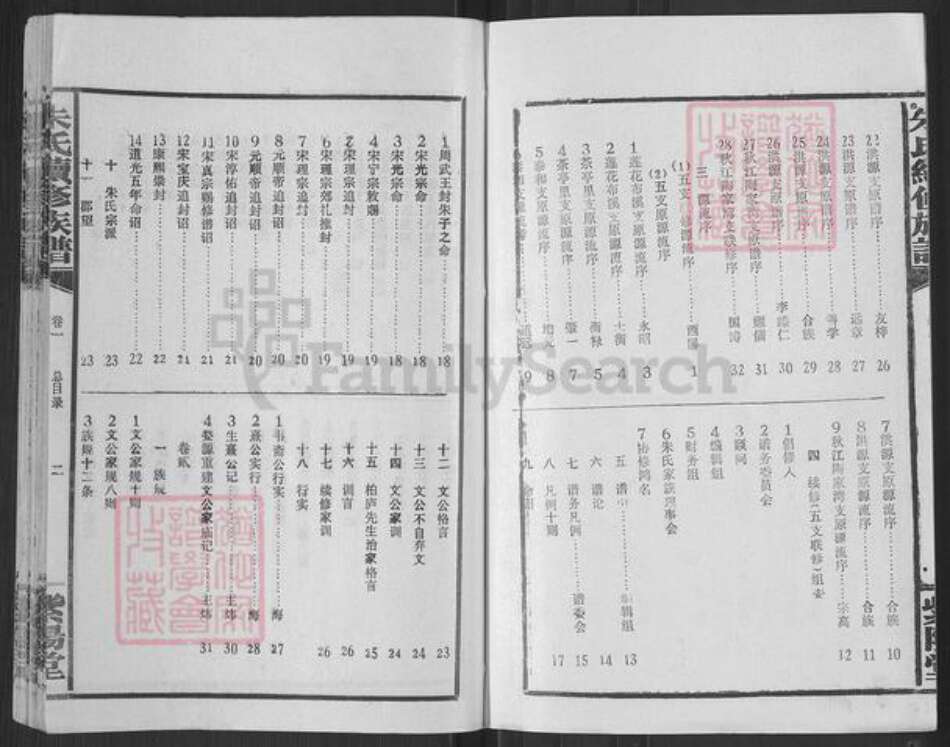 朱氏續修族譜
22 洪源支原譜序……友梓 26
23 洪源支原譜序……远章 27
24 洪源支原譜序……尊学 28
25 洪源支原譜序……合族 29
26 洪源支原譜序……李 仁 30
27 秋江陶家湾支原譜序……儒 31
28 秋江陶家湾支 序……国涛 32
三 源流序
(1)五支 源流序…… 1
(2)五支原源流序
1 莲花布溪支原源流序……永昭 3
2 莲花布溪支原源流序…… 4
3 茶亭里支原源流序…… 5
4 茶亭里支原源流序……肇一 7
5 泰和支原源流序…… 8
9
7 洪源支原源流序……合族 10
8 洪源支原源流序……合族 11
9 秋江陶家湾支原源流序……宗高 12
四 续修(五支联修)组委
1 倡修人
2 谱务委员会
3 顾问
4 编辑组
5 财务组
6 朱氏家族理事会
7 协修鸿名
五 谱 ……编辑组 13
六 谱论 14
七 谱务凡例……谱委会 15
八 凡例十则 17
紫陽堂
1 周武王封朱子之命…… 18
2 宋光宗命…… 18
3 宋光宗命…… 18
4 宋宁宗敕赐…… 19
5 宋理宗追封…… 19
6 宋理宗郊礼推封…… 19
7 宋理宗追封…… 20
8 元顺帝追封诏…… 20
9 元顺帝追封诏…… 20
10 宋淳佑追封诏…… 21
11 宋真宗赐修谱诏…… 21
12 宋宝庆追封诏…… 21
13 康熙崇封…… 22
14 道光五年命诏…… 22
十 朱氏宗派…… 23
十一 郡望…… 23
十二 文公格言 23
十三 文公不自弃文 24
十四 文公家训 24
十五 柏庐先生治家格言 25
十六 训言 26
十七 续修家训 26
十八 行实
1 韦斋公行实……熹 27
2 熹公实行…… 28
3 生熹公记……王炜 30
4 婺源重建文公家庙记……王炜 31
卷贰
一 族规
1 文公家规十则
2 文公家规八则
3 族规十二条
朱氏續修族譜
卷一
总目录
二
紫陽堂
FamilySearch